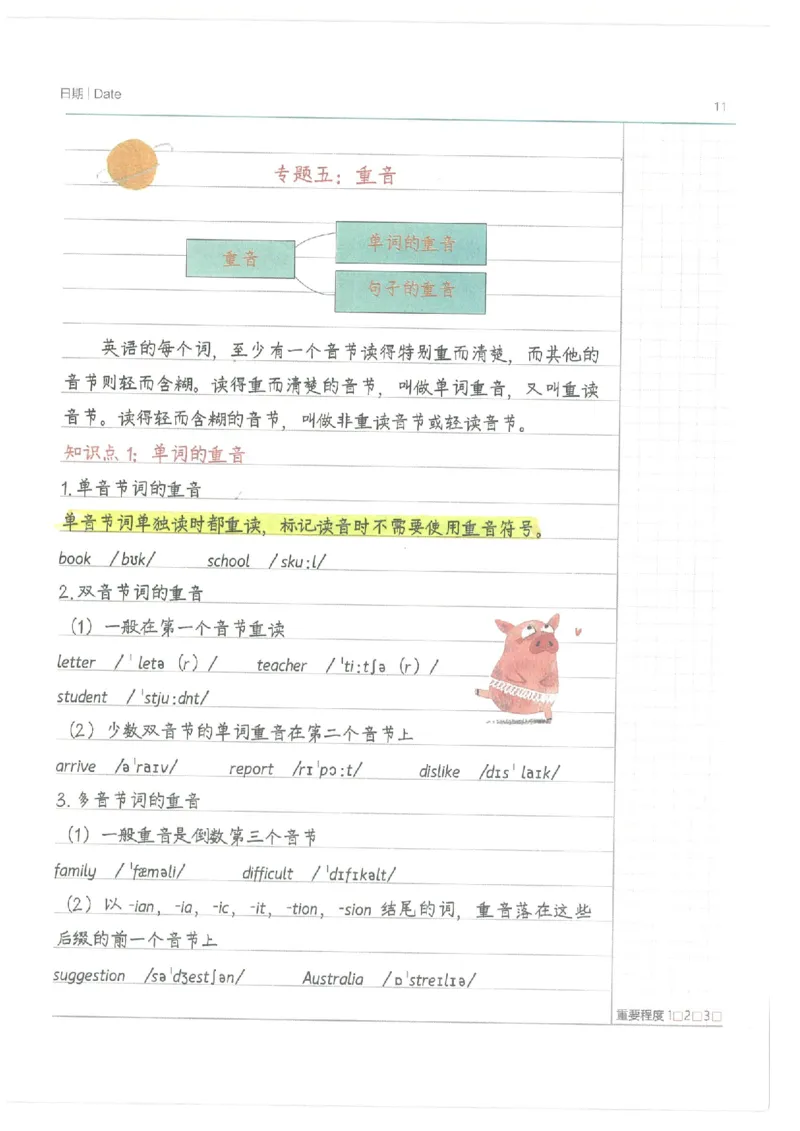 日期 | Date
11
专题五：重音
重音
单词的重音
句子的重音
英语的每个词，至少有一个音节读得特别重而清楚，而其他的
音节则轻而含糊。读得重而清楚的音节，叫做单词重音，又叫重读
音节。读得轻而含糊的音节，叫做非重读音节或轻读音节。
知识点 1：单词的重音
1.单音节词的重音
单音节词单独读时都重读，标记读音时不需要使用重音符号。
book /bʊk/ school /skuːl/
2.双音节词的重音
（1）一般在第一个音节重读
letter /ˈletə（r）/ teacher /ˈtiːtʃə（r）/
student /ˈstjuːdnt/
（2）少数双音节的单词重音在第二个音节上
arrive /əˈraɪv/ report /rɪˈpɔːt/ dislike /dɪsˈlaɪk/
3.多音节词的重音
（1）一般重音是倒数第三个音节
family /ˈfæməli/ difficult /ˈdɪfɪkəlt/
（2）以 -ian，-ia，-ic，-it，-tion，-sion 结尾的词，重音落在这些
后缀的前一个音节上
suggestion /səˈdʒestʃən/ Australia /ɒˈstreɪlɪə/
重要程度 1□2□3□